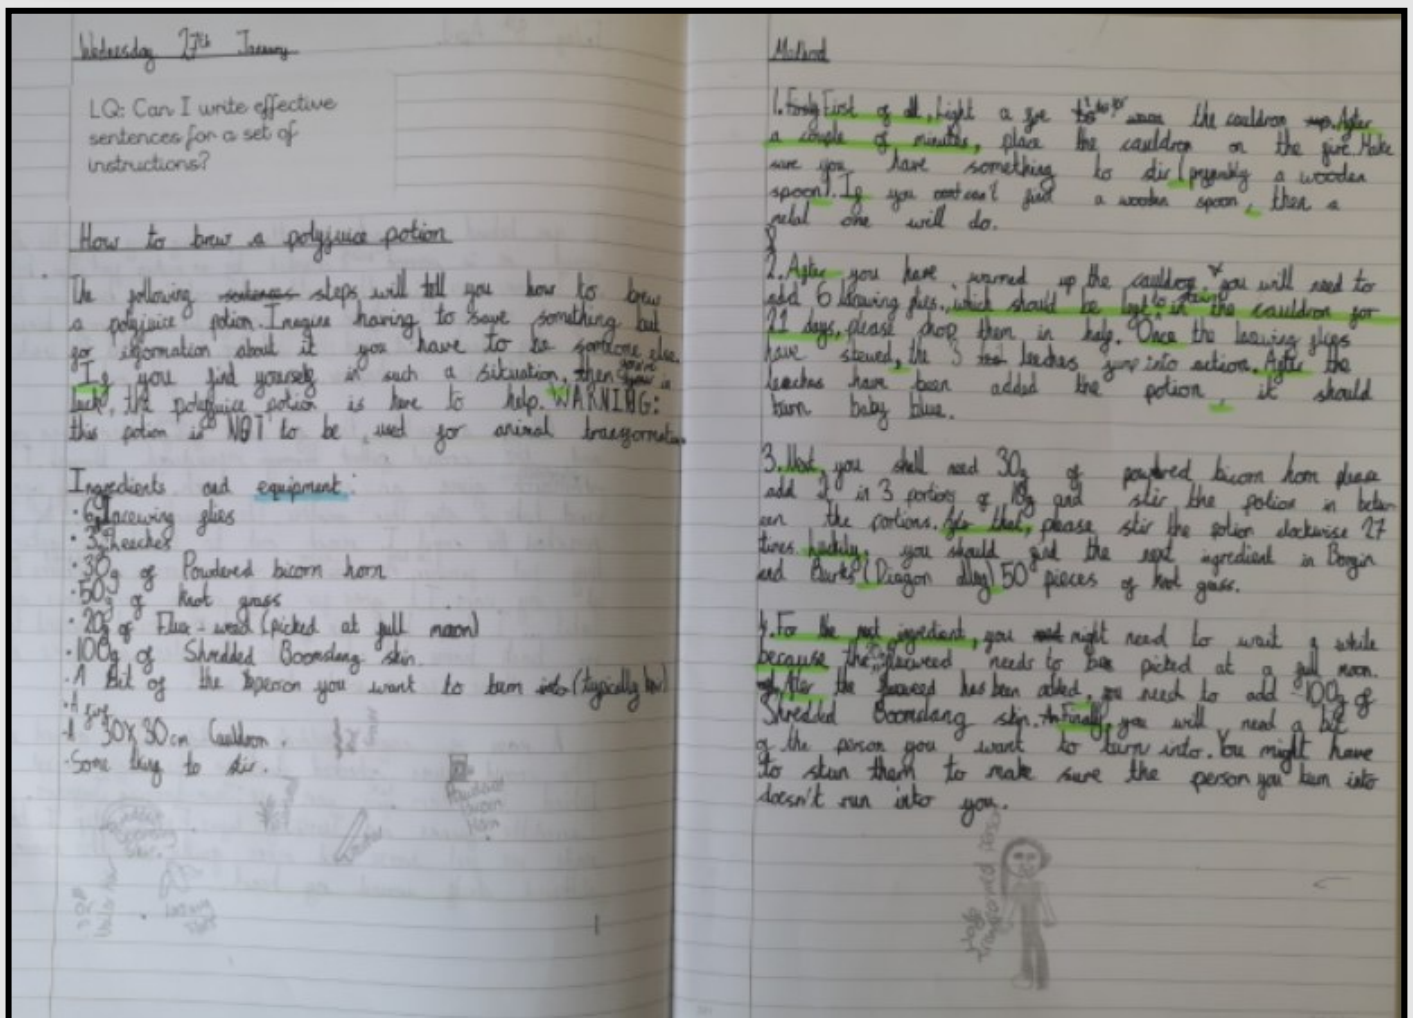 Wednesday 27th January
LQ: Can I write effective
sentences for a set of
instructions?
How to brew a polyjuice potion
The following sentences steps will tell you how to brew
a polyjuice potion. Imagine having to save something but
for information about it you have to be someone else.
If you find yourself in such a situation, then you're in
luck, the polyjuice potion is here to help. WARNING:
this potion is NOT to be used for animal transformation
Ingredients and equipment:
· 6 lacewing flies
· 3 leeches
· 30g of Powdered bicorn horn
· 50g of knot grass
· 20g of Flux-weed (picked at full moon)
· 100g of Shredded Boomslang skin.
· A Bit of the person you want to turn into (typically hair)
· A fire
· A 30X30cm Cauldron.
· Some thing to stir.
Powdered
Bicorn
Horn
Method
1. Firstly First of all, Light a fire to warm the cauldron up. After
a couple of minutes, place the cauldron on the fire. Make
sure you have something to stir (preferably a wooden
spoon). If you can't find a wooden spoon, then a
metal one will do.
2. After you have warmed up the cauldron, you will need to
add 6 lacewing flies, which should be left to stew in the cauldron for
21 days, please drop them in help. Once the lacewing flies
have stewed, the 3 leeches jump into action. After the
leeches have been added the potion, it should
turn baby blue.
3. Next, you shall need 30g of powdered bicorn horn please
add 2 in 3 portions of 10g and stir the potion in betw
een the portions. After that, please stir the potion clockwise 27
times. Luckily, you should find the next ingredient in Borgin
and Burks (Diagon alley) 50 pieces of knot grass.
4. For the next ingredient, you might need to wait a while
because the fluxweed needs to be picked at a full moon.
After the fluxweed has been added, you need to add 100g of
Shredded Boomslang skin. Finally, you will need a bit
of the person you want to turn into. You might have
to stun them to make sure the person you turn into
doesn't run into you.
Half
transformed person